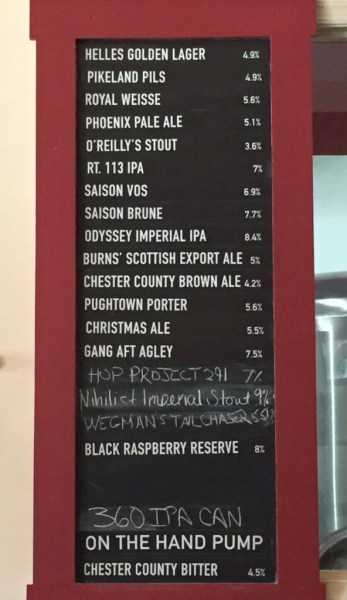 HELLES GOLDEN LAGER 4.9%
PIKELAND PILS 4.9%
ROYAL WEISSE 5.6%
PHOENIX PALE ALE 5.1%
O'REILLY'S STOUT 3.6%
RT. 113 IPA 7%
SAISON VOS 6.9%
SAISON BRUNE 7.7%
ODYSSEY IMPERIAL IPA 8.4%
BURNS' SCOTTISH EXPORT ALE 5%
CHESTER COUNTY BROWN ALE 4.2%
PUGHTOWN PORTER 5.6%
CHRISTMAS ALE 5.5%
GANG AFT AGLEY 7.5%
HOP PROJECT 291 7%
Nihilist Imperial Stout 9%
WEGMANS TAILCHASER
BLACK RASPBERRY RESERVE 8%
360 IPA CAN
ON THE HAND PUMP
CHESTER COUNTY BITTER 4.5%